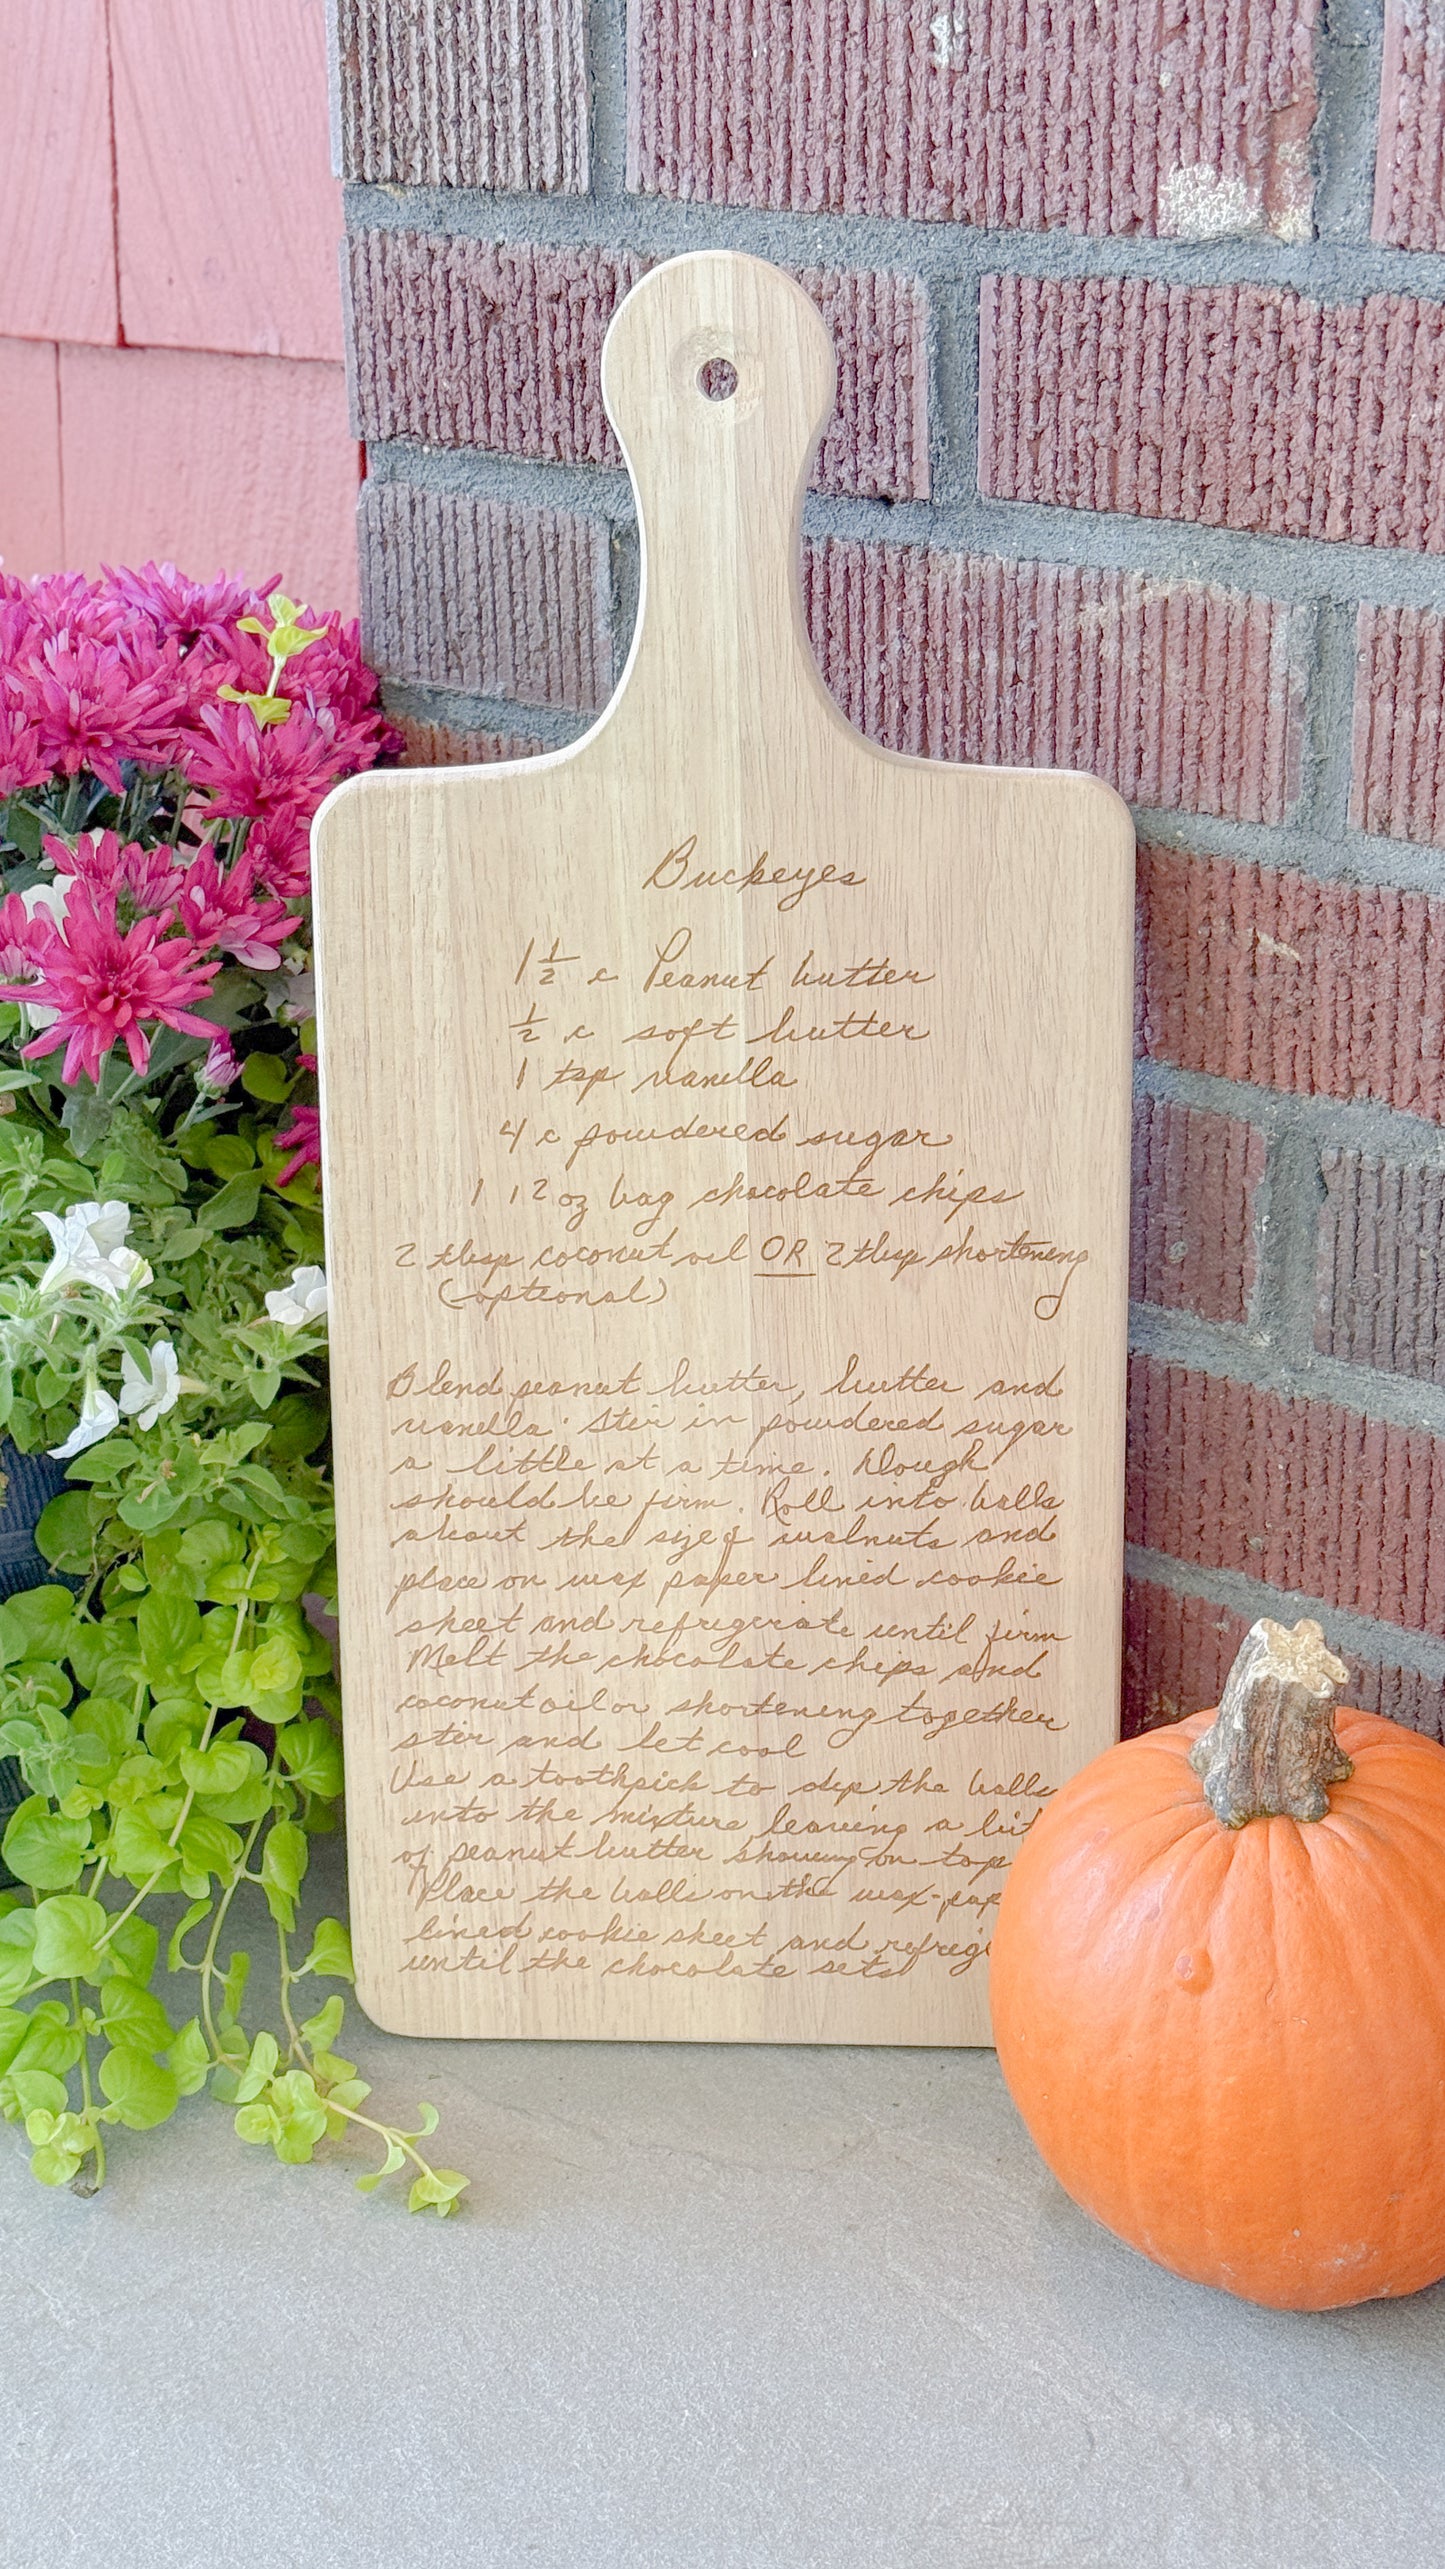 Buckeyes
1 1/2 c Peanut butter
1/2 c soft butter
1 tsp vanilla
4 c powdered sugar
1 12 oz bag chocolate chips
2 tbsp coconut oil OR 2 tbsp shortening
(optional)
Blend peanut butter, butter and
vanilla. Stir in powdered sugar
a little at a time. Dough
should be firm. Roll into balls
about the size of walnuts and
place on wax paper lined cookie
sheet and refrigerate until firm
Melt the chocolate chips and
coconut oil or shortening together
stir and let cool
Use a toothpick to dip the balls
into the mixture leaving a bit
of peanut butter showing on top
Place the balls on the wax-pap
lined cookie sheet and refrige
until the chocolate sets